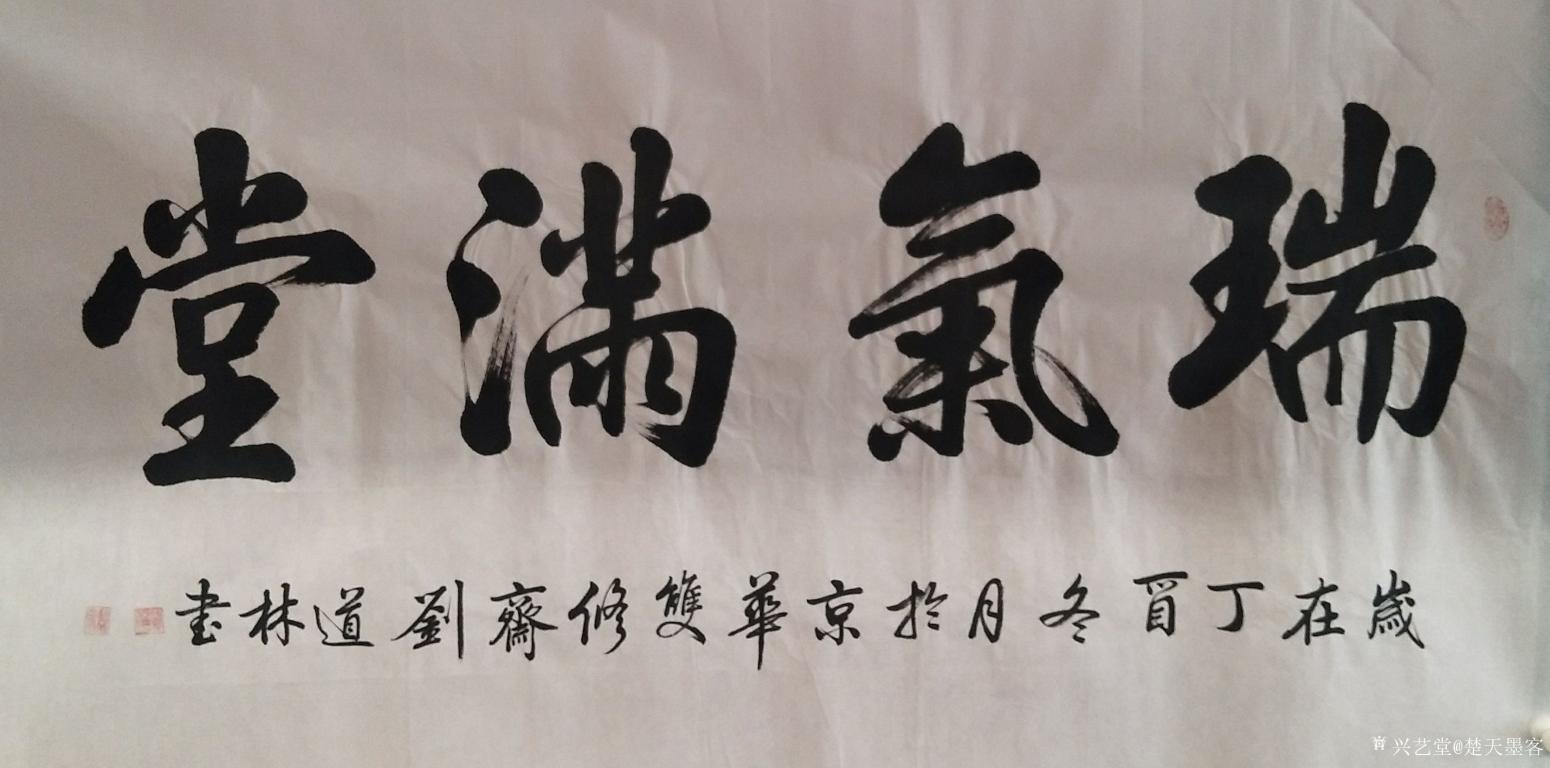 瑞氣滿堂
歲在丁酉冬月於京華雙修齋劉道林書
兴艺堂@楚天墨客